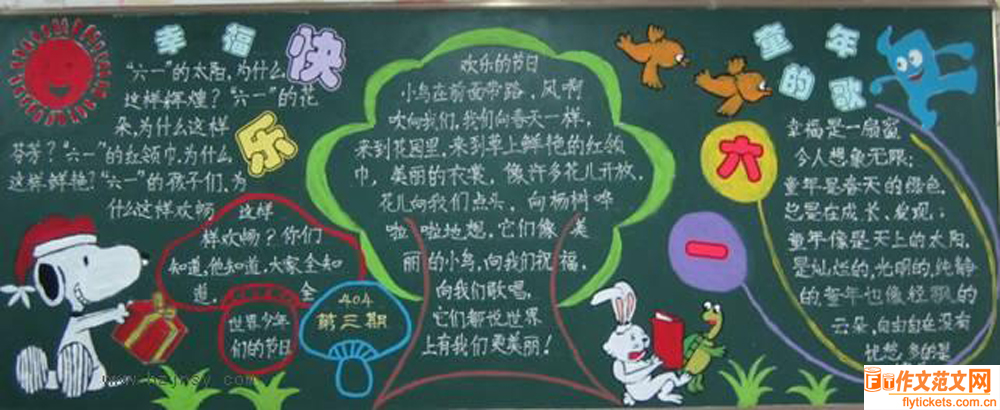 幸福
快
乐
"六一"的太阳,为什么
这样辉煌?"六一"的花
朵,为什么这样
芬芳?"六一"的红领巾,为什么
这样鲜艳?"六一"的孩子们,为
什么这样欢畅 这样
样欢畅?你们
知道,他知道,大家全知
道。 全
世界少年
们的节日
404
第三期
欢乐的节日
小鸟在前面带路,风啊
吹向我们,我们向春天一样,
来到花园里,来到草上鲜艳的红领
巾,美丽的衣裳,像许多花儿开放,
花儿向我们点头,向杨树哗
啦 啦地想,它们像 美
丽的小鸟,向我们祝福,
向我们歌唱,
它们都说世界
上有我们更美丽!
童年
的歌
六
一
幸福是一扇窗
令人想象无限;
童年是春天的绿色,
总是在成长、发现;
童年像是天上的太阳,
是灿烂的,光明的,纯静
的,童年也像轻飘的
云朵,自由自在没有
忧愁,多的是
www.hzjnsy.com
作文范文网
flytickets.com.cn